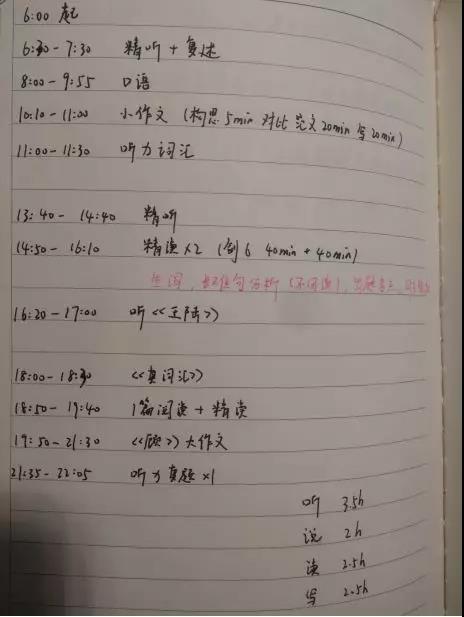 6:00 起
6:30-7:30 精听+复述
8:00-9:55 口语
10:10-11:00 小作文 (构思5min 对比范文20min 写20min)
11:00-11:30 听力词汇
13:40-14:40 精听
14:50-16:10 精读×2 (剑6 40min+40min)
生词, 长难句分析 (不回读),
16:20-17:00 听《王陆》
18:00-18:30 《真词汇》
18:50-19:40 1篇阅读+精读
19:50-21:30 《顾》大作文
21:35-22:05 听力真题×1
听 3.5h
说 2h
读 2.5h
写 2.5h